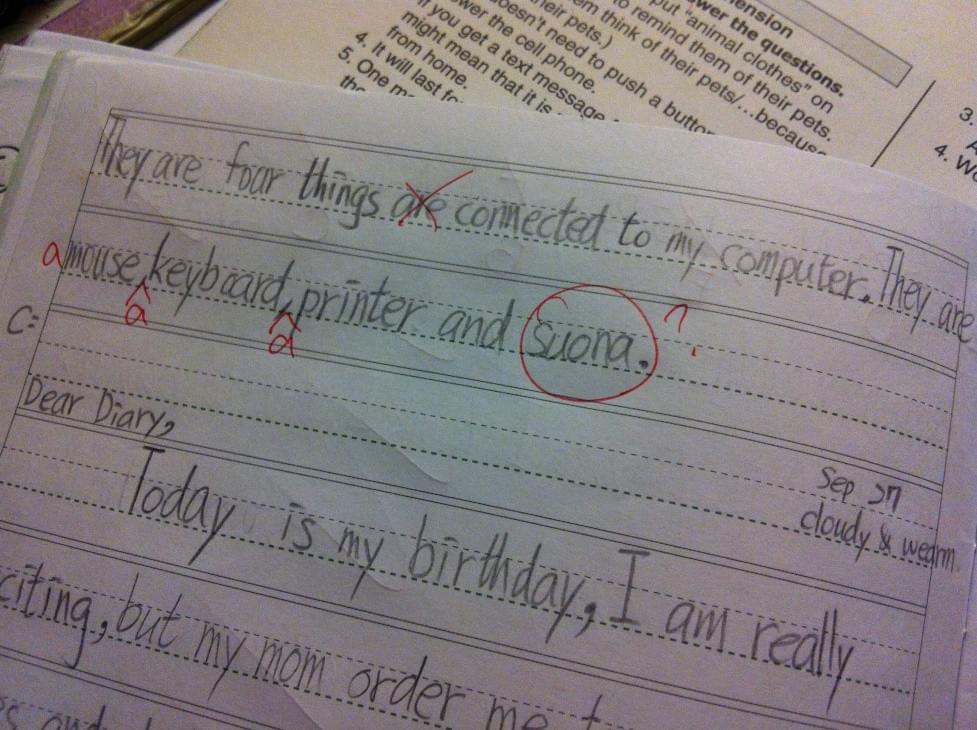 ension
wer the questions.
put "animal clothes" on
to remind them of their pets.
em think of their pets/...because
heir pets.)
doesn't need to push a button
wer the cell phone.
if you get a text message
might mean that it is
from home.
4. It will last
5. One
3.
4.
They are four things are connected to my computer. They are
a mouse, keyboard, printer and suona. ?
a a
C:
Dear Diary,
Sep 27
cloudy & wearm.
Today is my birthday, I am really
citing, but my mom order me t